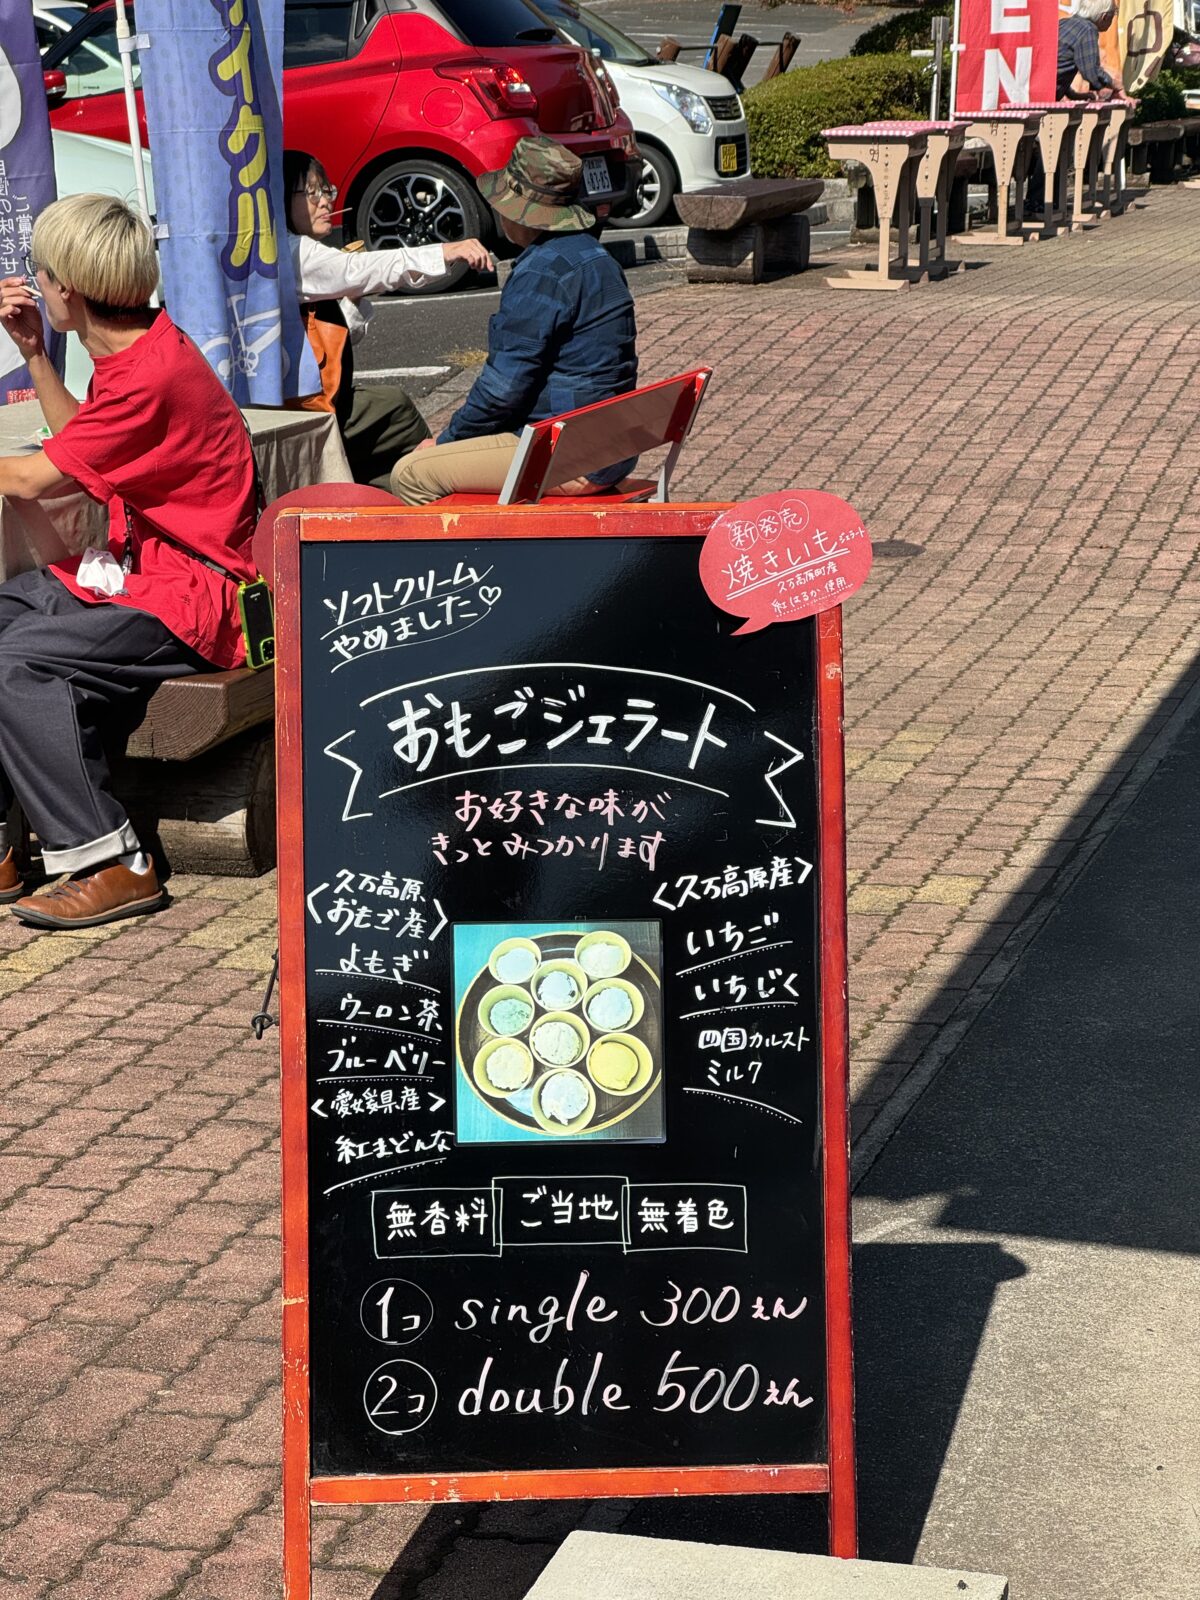 サイクル
ご賞味
自慢の味をぜ
EN
83-85
新発売
焼きいもジェラート
久万高原町産
紅はるか使用
ソフトクリーム
やめました♡
おもごジェラート
お好きな味が
きっとみつかります
<久万高原
おもご産>
よもぎ
ウーロン茶
ブルーベリー
<愛媛県産>
紅まどんな
<久万高原産>
いちご
いちじく
四国カルスト
ミルク
無香料 ご当地 無着色
1コ single 300えん
2コ double 500えん